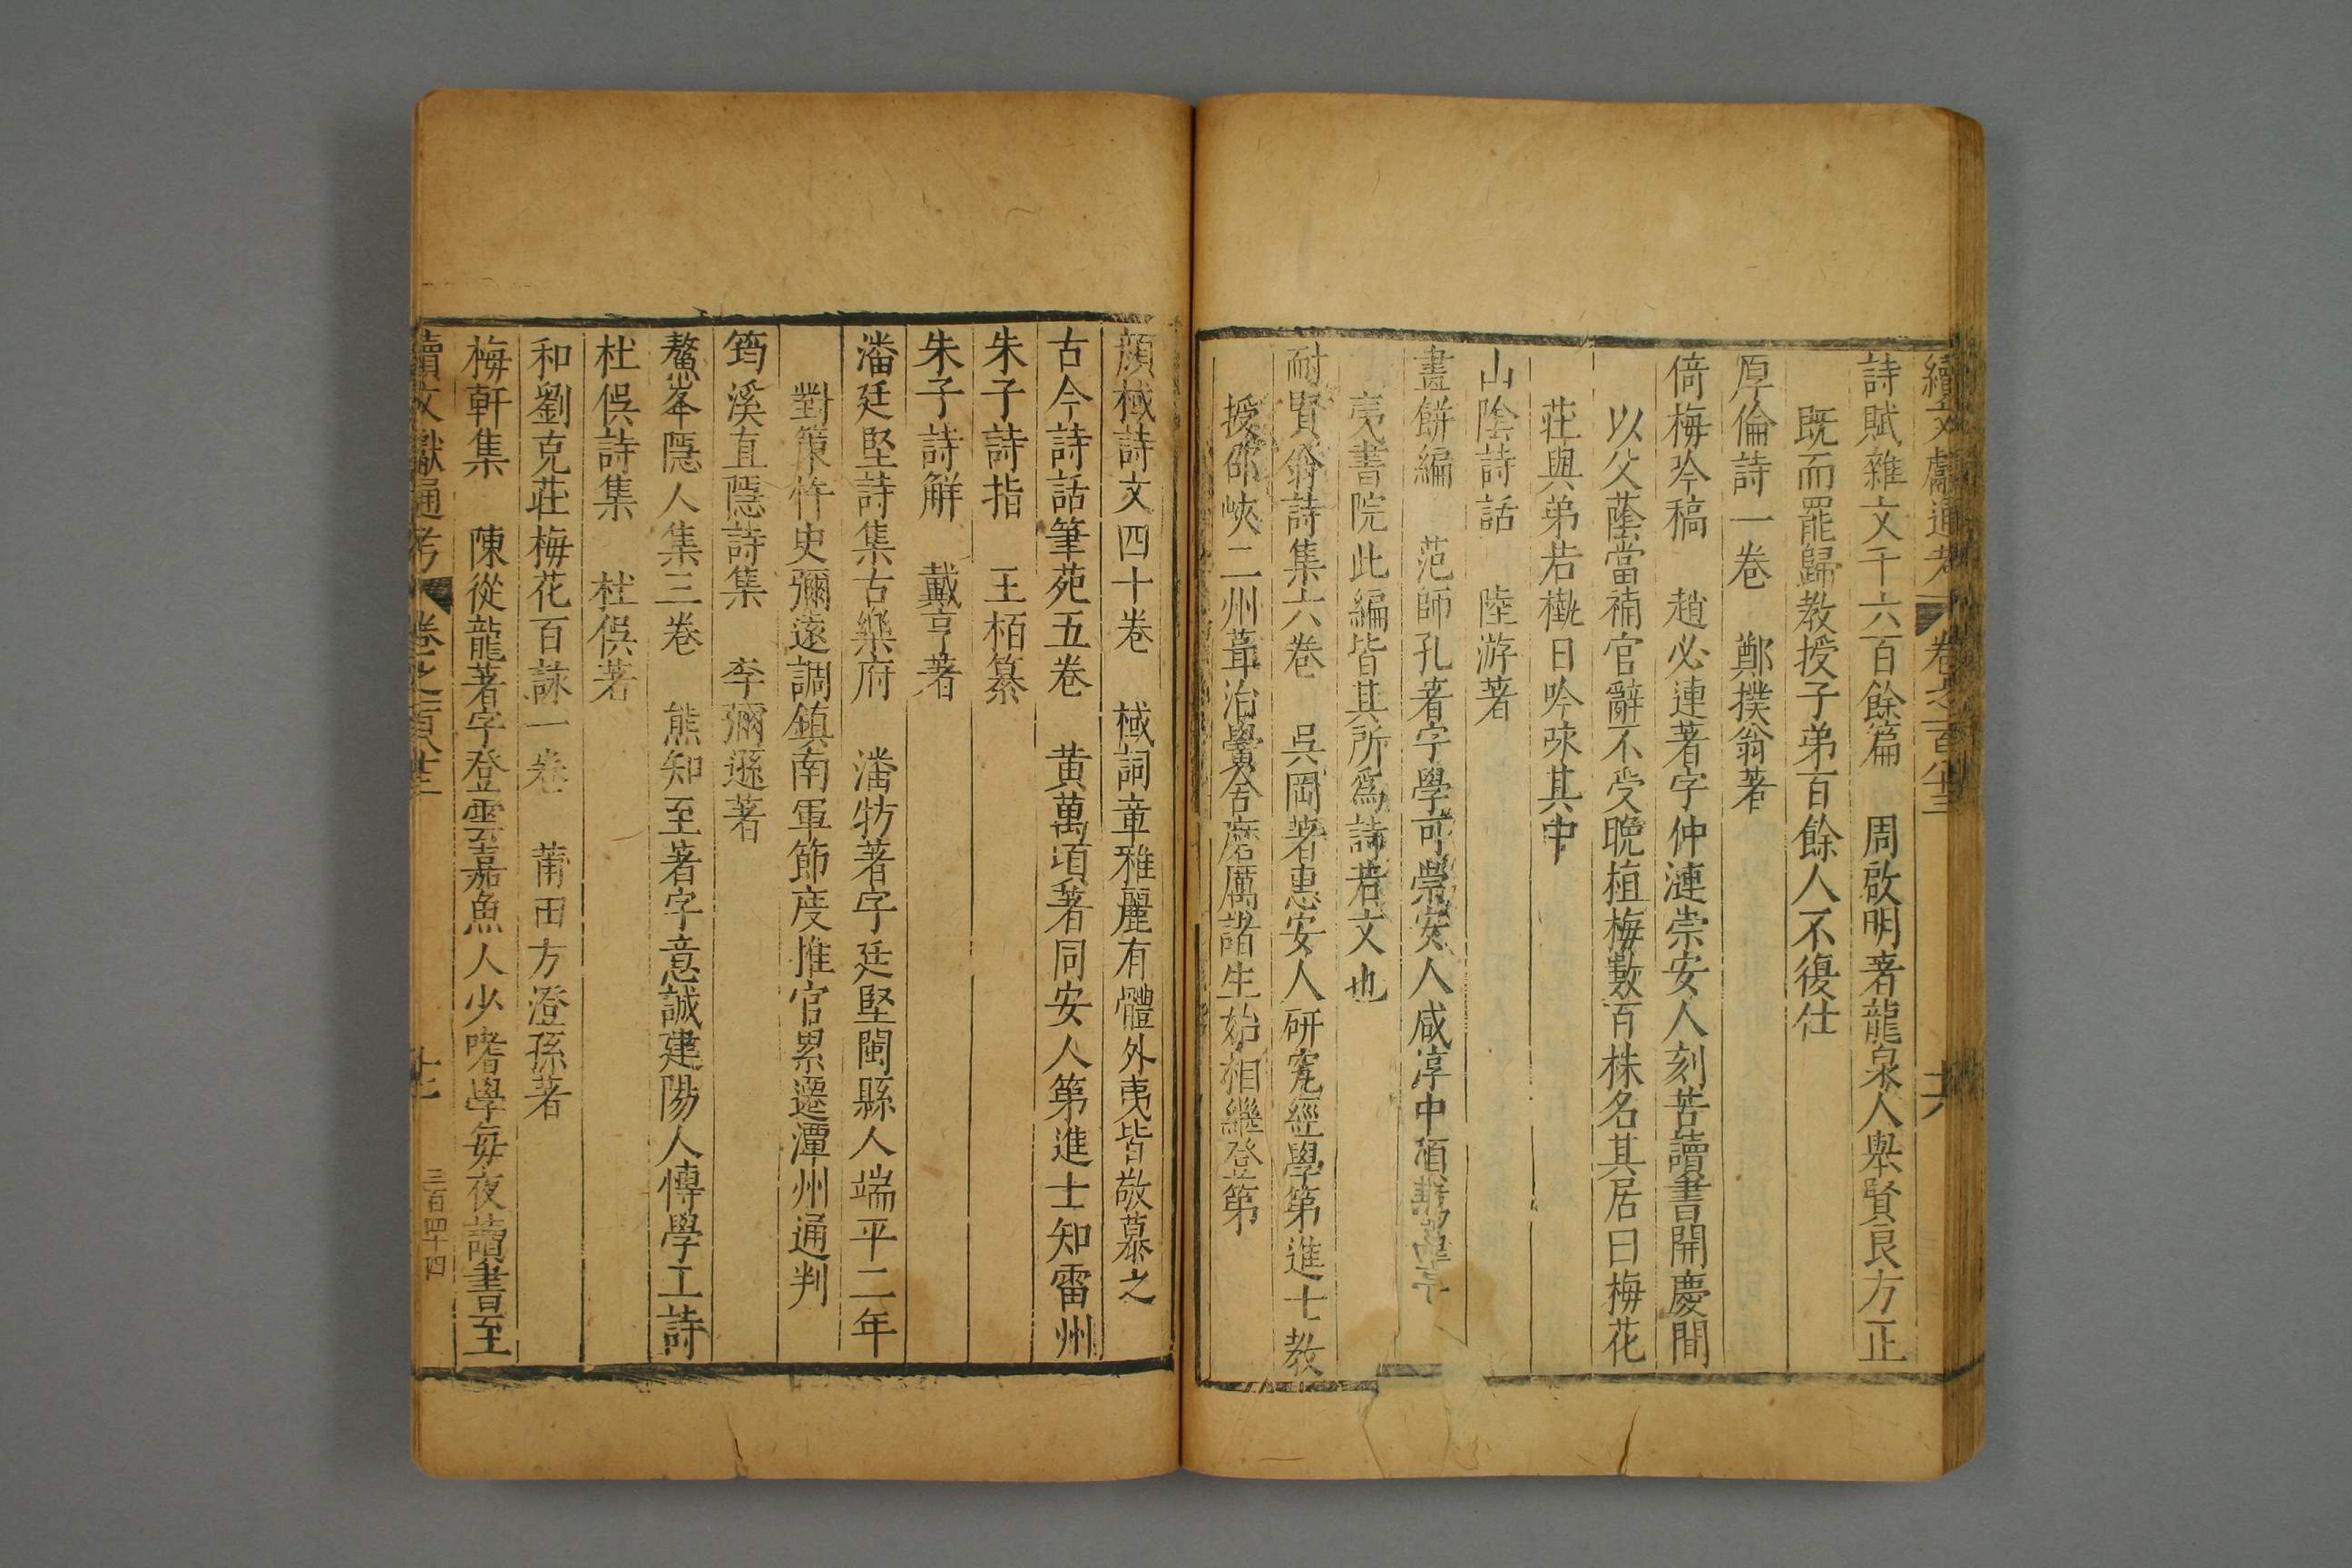 續文獻通考 卷之一百八十三 十六
詩賦雜文千六百餘篇 周啟明著龍泉人舉賢良方正
既而罷歸教授子弟百餘人不復仕
厚倫詩一卷 鄭撲翁著
倚梅吟稿 趙必連著字仲漣崇安人刻苦讀書開慶間
以父蔭當補官辭不受晚植梅數百株名其居曰梅花
莊與弟若槸日吟咏其中
山陰詩話 陸游著
畫餅編 范師孔著字學可崇安人咸淳中領
夷書院此編皆其所爲詩若文也
耐賢翁詩集六卷 吳岡著惠安人研究經學第進士教
授邵峽二州葺治黌舍磨厲諸生始相繼登第
顔棫詩文四十卷 棫詞章雅麗有體外夷皆敬慕之
古今詩話筆苑五卷 黄萬頃著同安人第進士知雷州
朱子詩指 王栢纂
朱子詩解 戴亨著
潘廷堅詩集古樂府 潘牥著字廷堅閩縣人端平二年
對策忤史彌遠調鎮南軍節度推官累遷潭州通判
筠溪直隱詩集 李彌遜著
鰲峯隱人集三卷 熊知至著字意誠建陽人博學工詩
杜俁詩集 杜俁著
和劉克莊梅花百詠一卷 莆田方澄孫著
梅軒集 陳從龍著字登雲嘉魚人少嗜學毎夜讀書至
續文獻通考 卷之一百八十三 十七 三百四十四